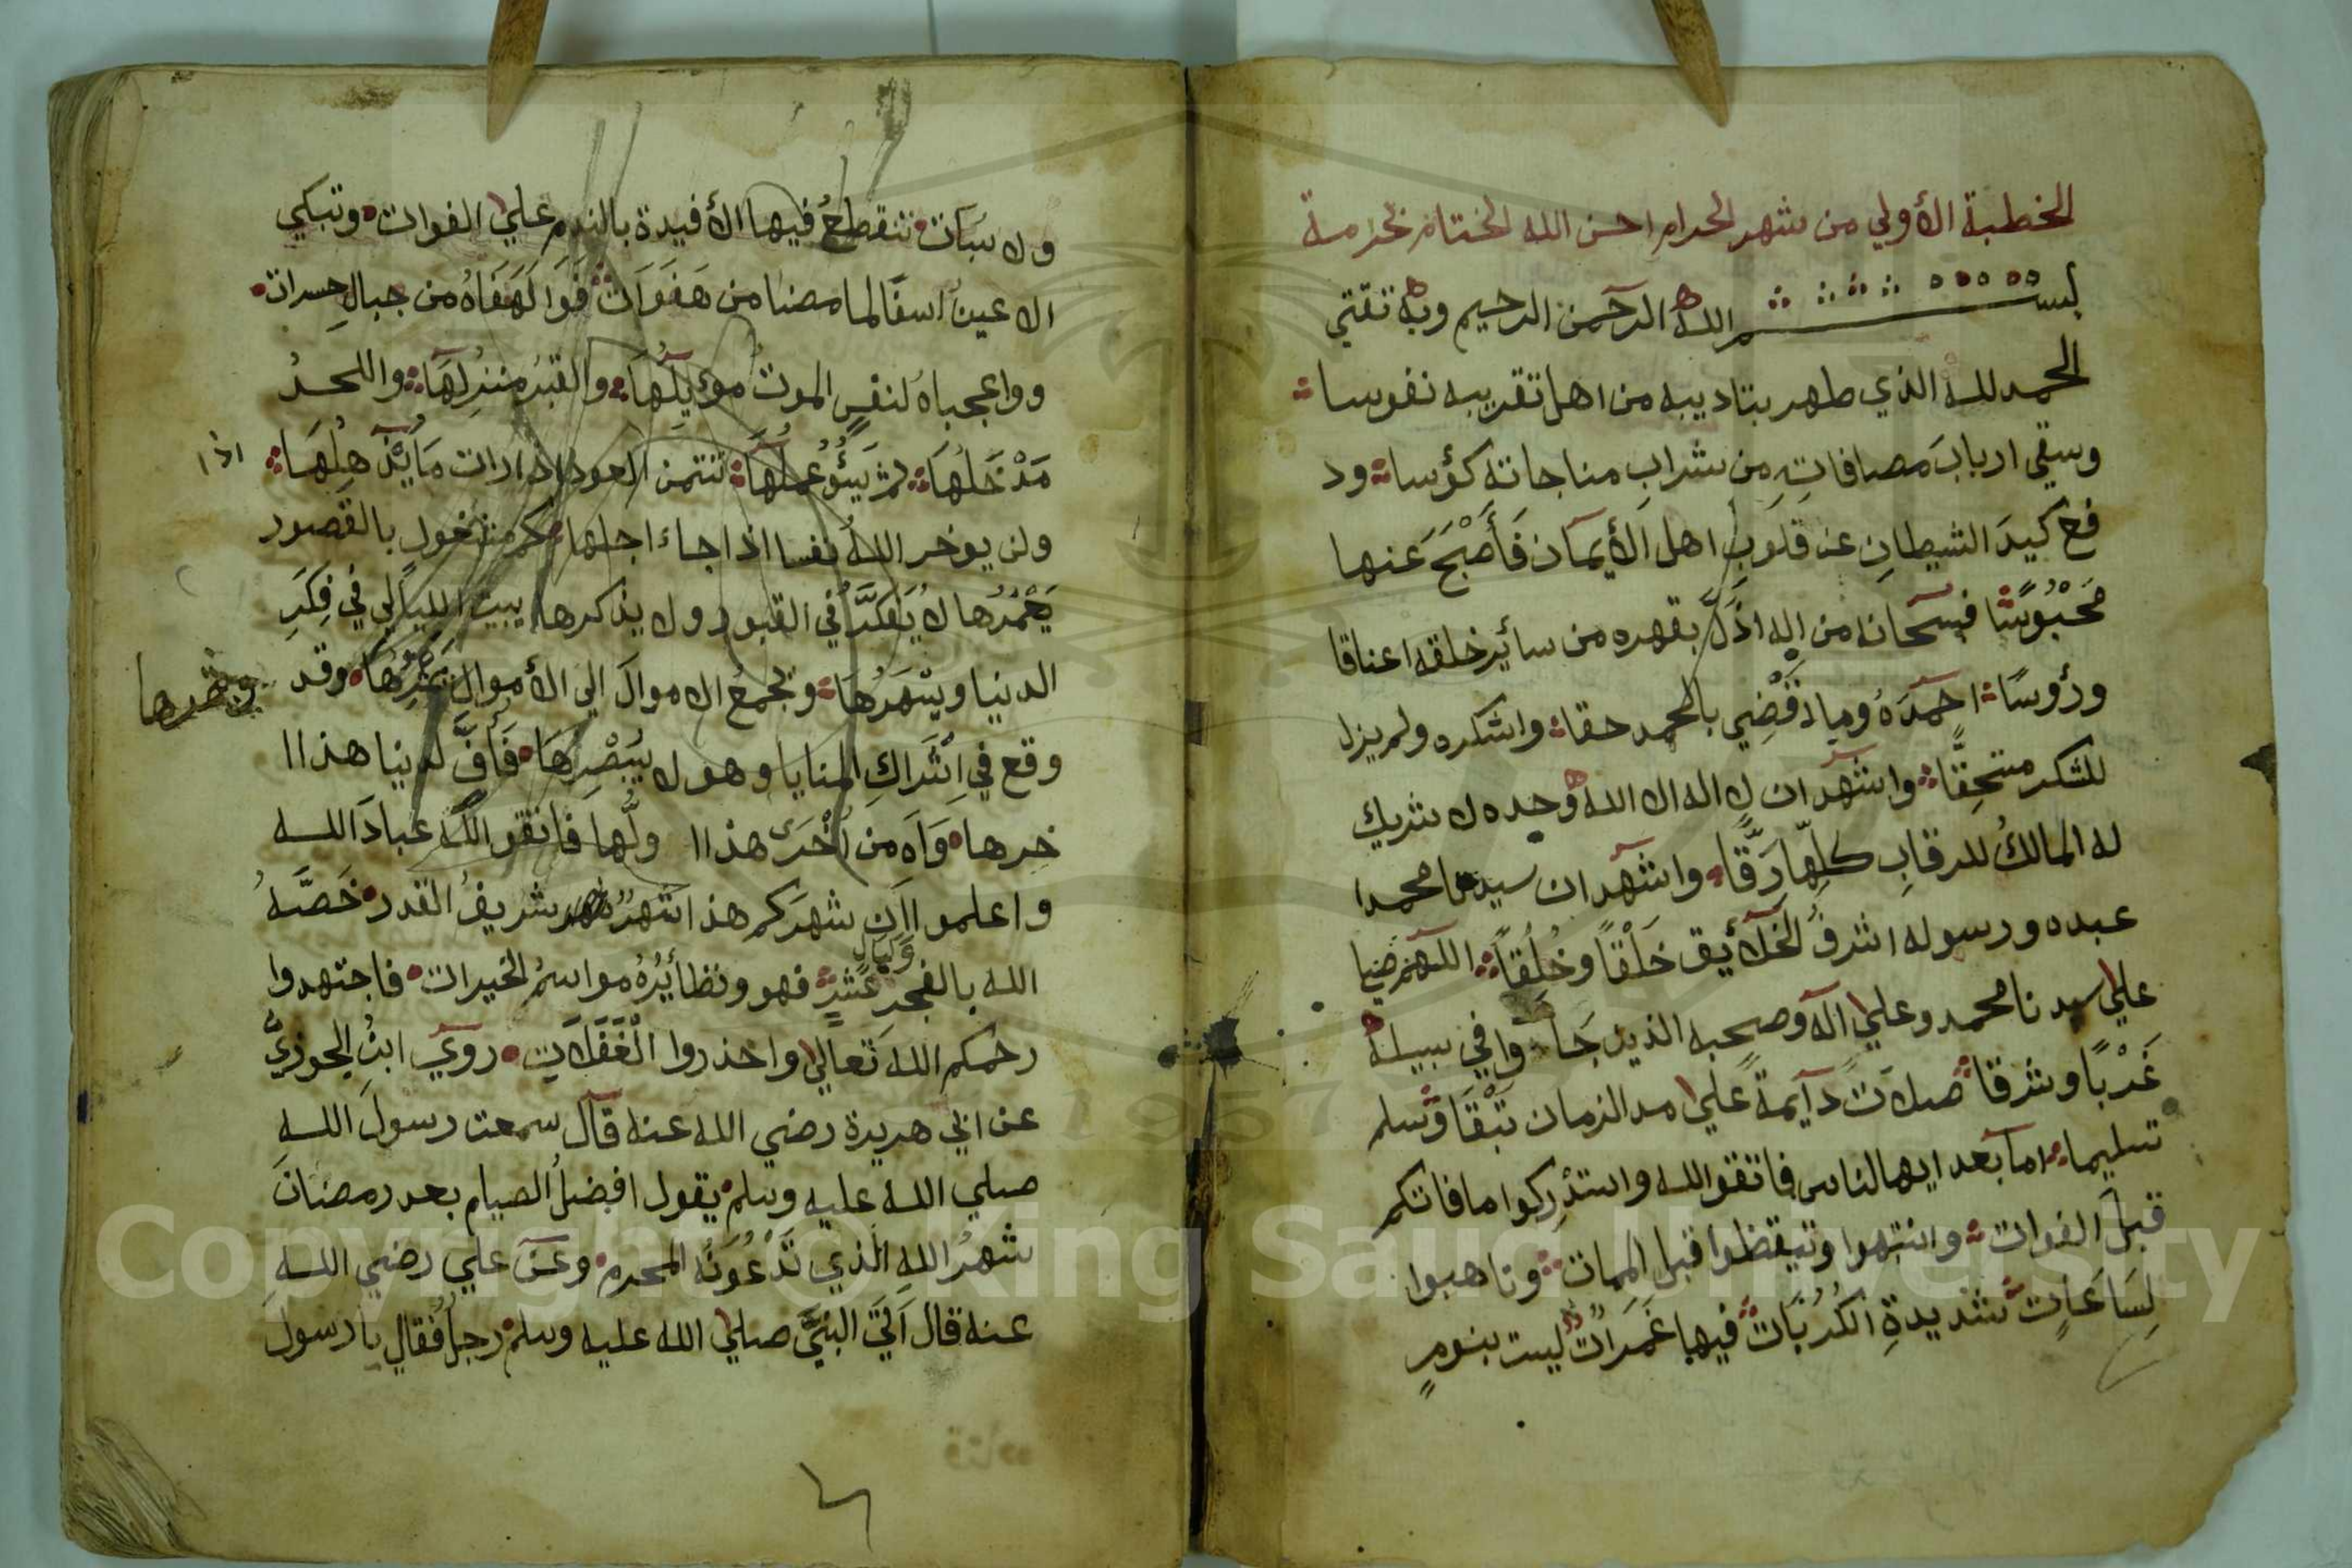 الخطبة الأولي من شهر الحرام احسن الله الختام بحرامة
بسم الله الرحمن الرحيم وبه تقتي
الحمد لله الذي طهر بتاديبه من اهل تقريبه نفوسا
وسقي ارباب مصافاتِهِ من شراب مناجاته كؤسا ود
فع كيدَ الشيطانِ عن قلوبِ اهل الأيمان فَأَصْبَحَ عنها
مَحْبُوسًا فسبحانه من اله اذَلَّ بقهره من سائر خلقه اعناقا
ورؤوسًا احمَدَهُ وما اقْضِي بالحمد حقا واشكره ولم يزل
للشكر مستحِقًّا واشهد ان لا اله الا الله وحده لا شريك
له المالكُ للرقابِ كلِهّا رَقًّا واشهد ان سيدنا محمدا
عبده ورسوله اشرفُ الخلائيق خَلْقًا وخُلُقًا اللهم صليا
علي سيدنا محمد وعلي آله وصحبه الذين جَاوا في سبيله
غَرْبًا وشرقا صلاتً دآيمةً علي مد الزمان تَبْقَا وسلم
تسليما اما بعد ايها الناس فاتقو الله واستدْرِكوا ما فاتكم
قبل الفوات وانتبهوا وتيقظوا قبل الممات وتاهبوا
لِسَاعَاتٍ شديدةِ الكُرُبَات فيها غَمَرَاتٌ ليست بنومٍ
ولا سُبَات تتقطعُ فيها الأفيدة بالندم علي الفوات وتبكي
الاعين اسفًا لما مضا من هَفَوَات فَوَا لَهَفَاهُ من جبالِ حِسرات
وواعجباهُ لنفسٍ الموتُ مؤيِلُهَا والقبرُ منزِلهَا واللحدُ
مَدْخَلُهَا ثم يَسُؤُ عملُهَا تتمن العود اذ ارات مَا يُذْهِلُهَا
اذا
ولن يوخر اللهُ نفسا اذا جاء اجلها كم مشغول بالقصور
يَعْمُرُها لا يَفَكَّرُ في القبور ولا يذكرها يبيت الليالي في فِكَرِ
الدنيا ويسْهَرُهَا ويجمعُ الاموالَ الي الأموال يثمِّرُهَا وقد
وقع في اِشْرَاكِ المنايا وهو لا يُبَصْرِهَا فَأَفَّ لدنيا هذا ا
خِرها وَآهٍ من اُخْرَى هذا ا ولُّها فاتقو اللهَ عبادَ اللـه
واعلموا اَن شهرَكم هذا شهرٌ شريفُ القدر خَصَّهُ
الله بالفجر وَلَيَالٍ عَشرٍ فهو ونظائِرُهُ مواسمُ الخيرات فاجتهدوا
رحمكم الله تعالي واحذروا الْغَفَلَاتِ رويَ ابنُ الجوزيُّ
عن ابي هريرة رضي الله عنه قالَ سمعت رسولَ اللـه
صلي اللـه عليه وسلم يقول افضلُ الصيام بعد رمضانَ
شهرُ اللهِ الَذي تَدْعُوَنَهُ المحرم وعن علي رضي اللـه
عنه قال اَتَي النبيَّ صلي الله عليه وسلم رجل فقال يا رسولَ
Copyright © King Saud University
1957